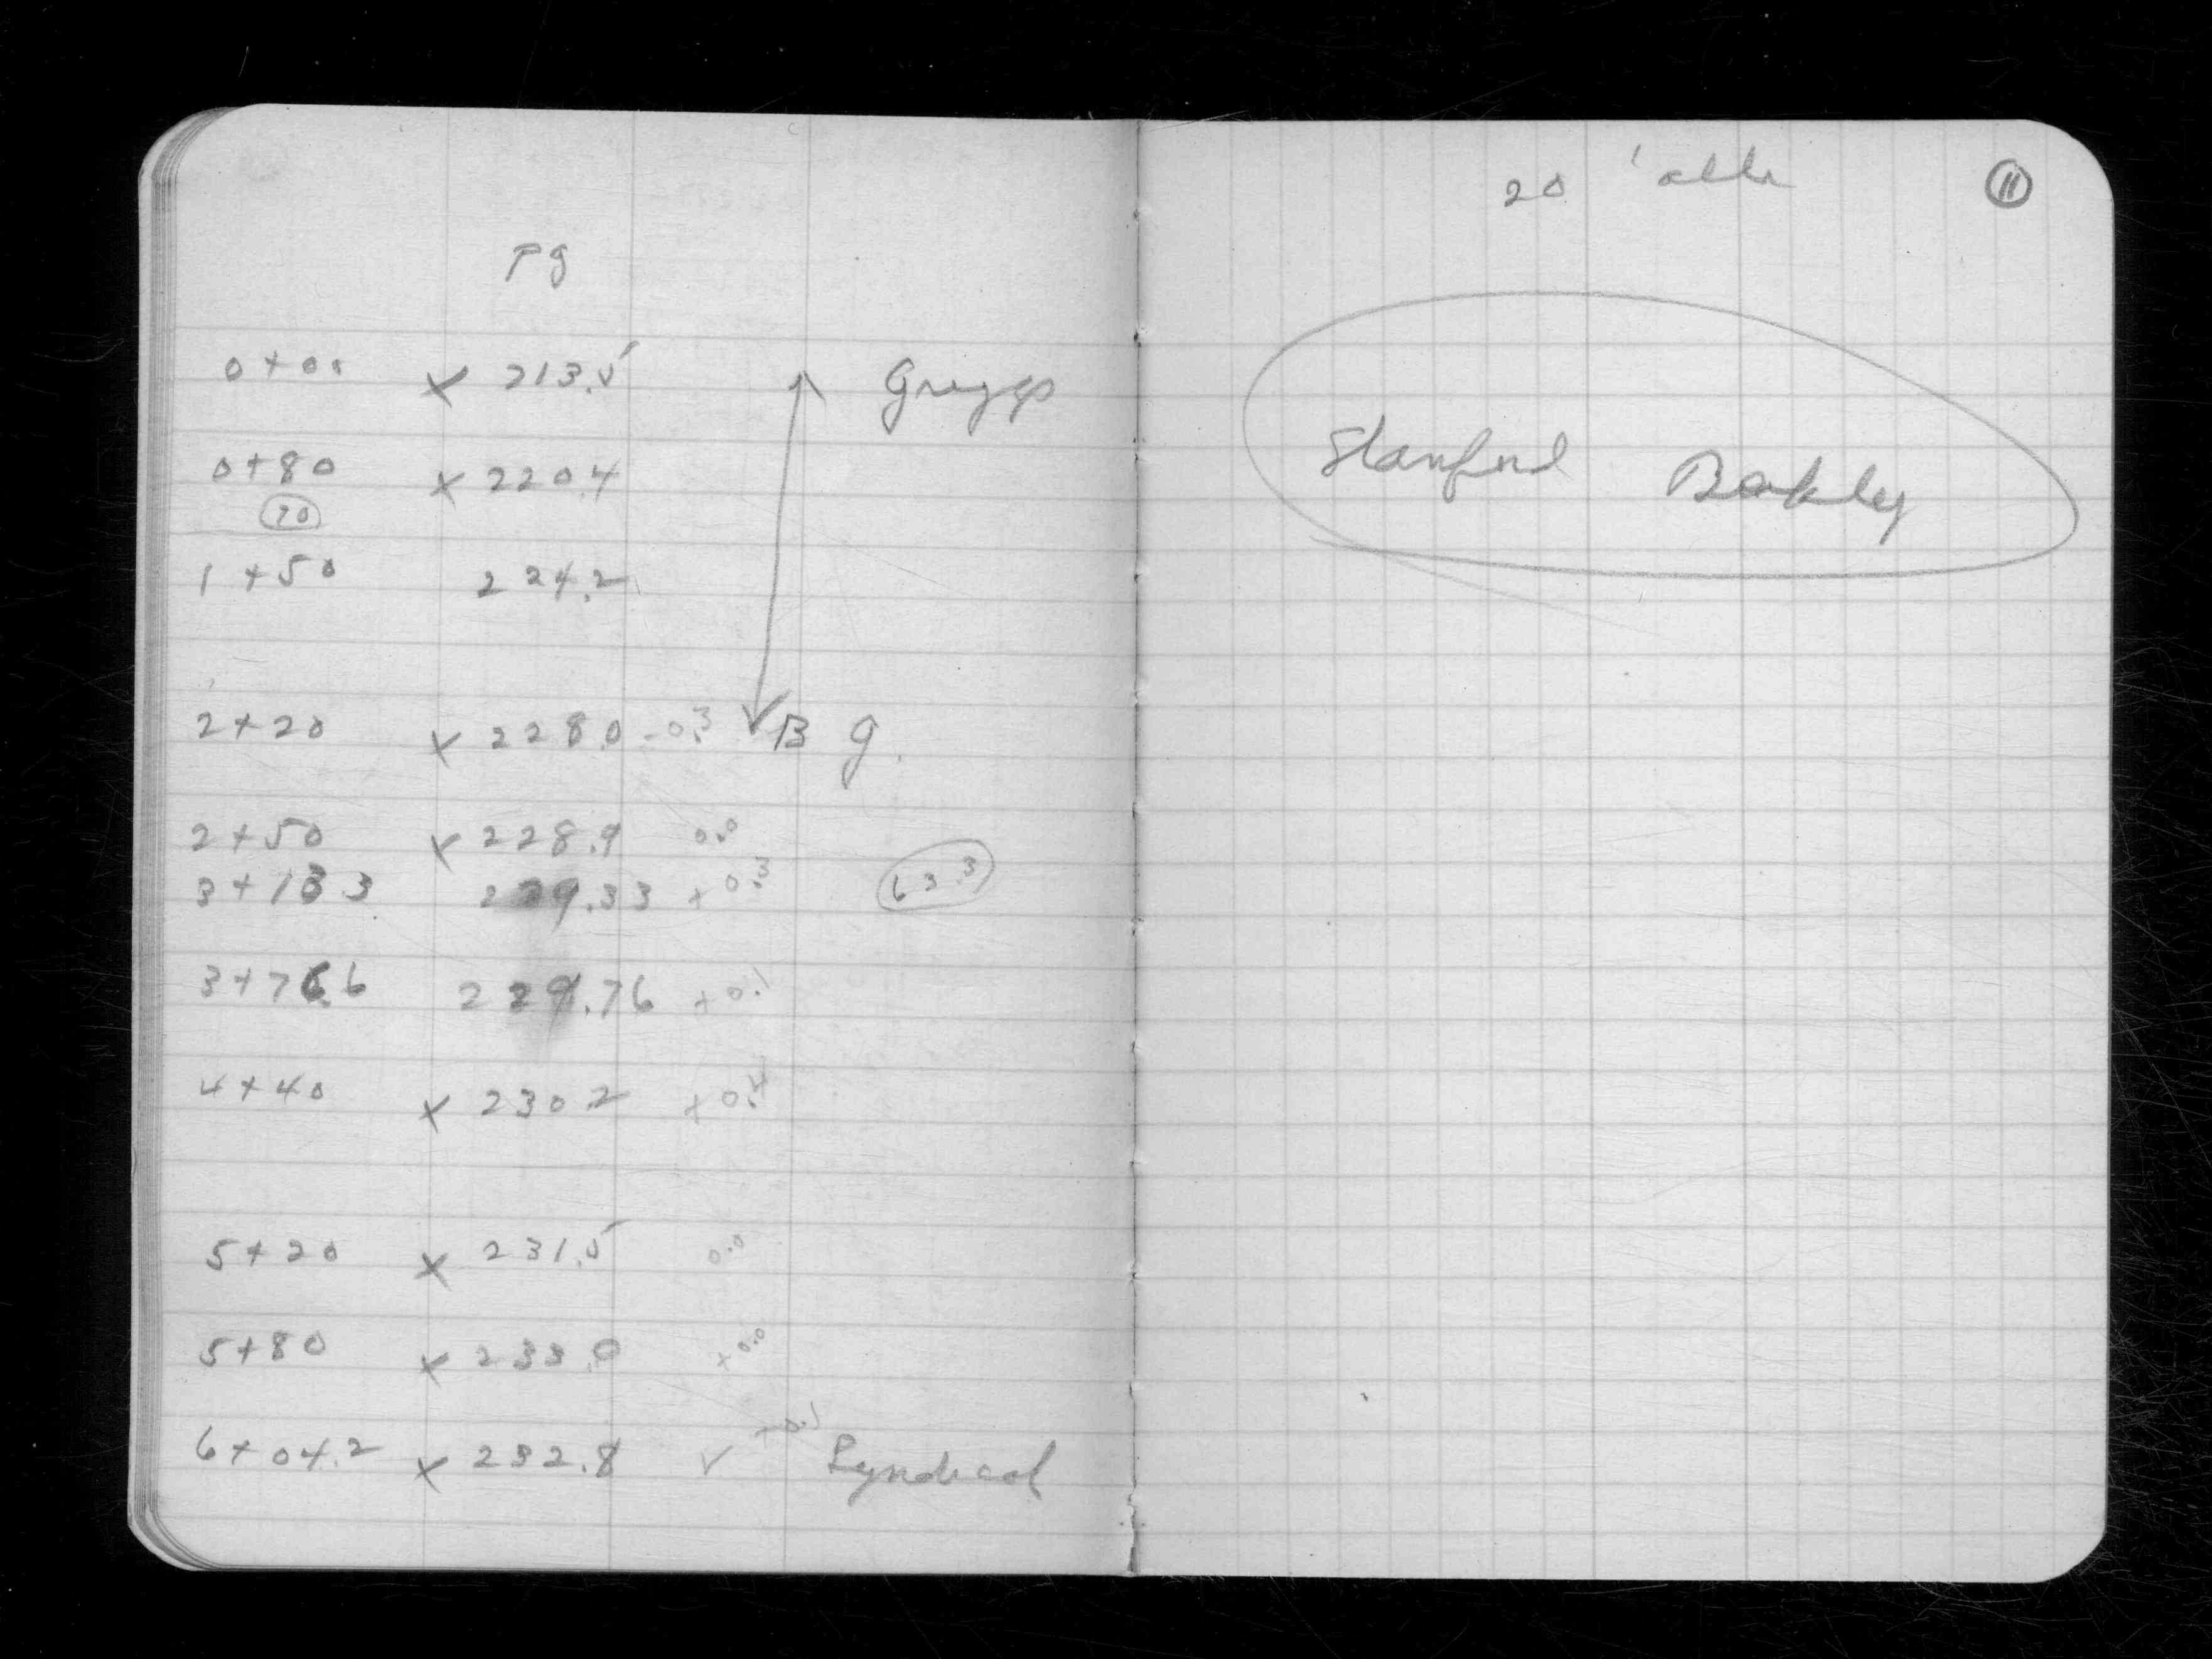 Pg
0+00 x 213.5 Griggs
0+80 x 220.4
70
1+50 224.2
2+20 x 228.0 -0.3 B g.
2+50 x 228.9 0.0
3+13 3 229.33 +0.3 63.3
3+76.6 229.76 +0.1
4+40 x 230.2 +0.4
5+20 x 231.5 0.0
5+80 x 233.0 +0.0
6+04.2 x 232.8 ✓ -0.1
20 'alle
11
Stanford Barkley